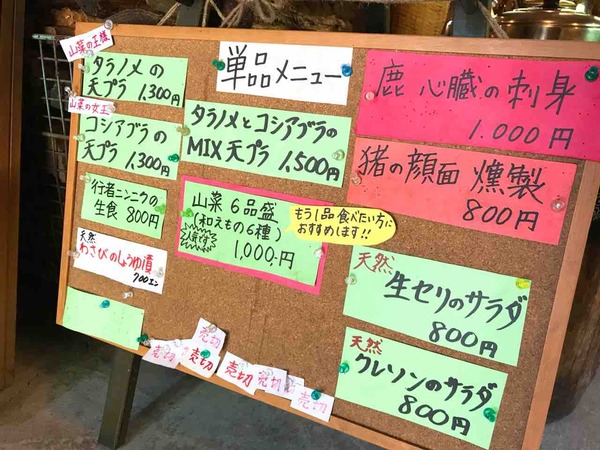 単品メニュー
山菜の王様
タラノメの
天プラ 1,300円
山菜の女王
コシアブラの
天プラ 1,300円
行者ニンニクの
生食 800円
天然
わさびのしょうゆ漬
700エン
タラノメとコシアブラの
MIX天プラ 1,500円
山菜 6品盛
(和えもの6種)
人気です
1,000円
もう1品食べたい方に
おすすめします!!
鹿 心臓の刺身
1.000円
猪の顔面 燻製
800円
天然
生セリのサラダ
800円
天然
クレソンのサラダ
800円
売切
売切
売切
売切
売切
売切